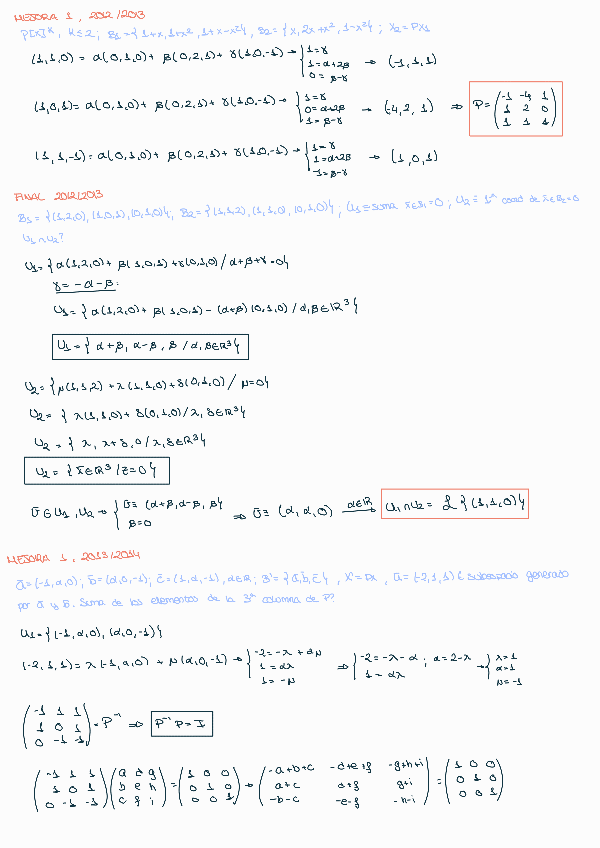 MEJORA 1, 2012/2013
P[x]ᴷ, K≤2; B₁={1+x, 1+x², 1+x-x²}, B₂={x, 2x+x², 1-x²}; X₂=PX₁
(1,1,0) = α(0,1,0) + β(0,2,1) + γ(1,0,-1) → { 1=γ / 1=α+2β / 0=β-γ → (-1,1,1)
(1,0,1) = α(0,1,0) + β(0,2,1) + γ(1,0,-1) → { 1=γ / 0=α+2β / 1=β-γ → (-4,2,1) ⇒ P = (-1 -4 1 / 1 2 0 / 1 1 1)
(1,1,-1) = α(0,1,0) + β(0,2,1) + γ(1,0,-1) → { 1=γ / 1=α+2β / -1=β-γ → (1,0,1)
FINAL 2012/2013
B₁={(1,2,0),(1,0,1),(0,1,0)}, B₂={(1,1,2),(1,1,0),(0,1,0)}; U₁≡suma x̄∈B₁=0; U₂≡1ª coord de x̄∈B₂=0
U₁∩U₂?
U₁={α(1,2,0)+β(1,0,1)+γ(0,1,0)/α+β+γ=0}
γ=-α-β:
U₁={α(1,2,0)+β(1,0,1)-(α+β)(0,1,0)/α,β∈ℝ³}
U₁={α+β, α-β, β/α,β∈ℝ³}
U₂={μ(1,1,2)+λ(1,1,0)+δ(0,1,0)/μ=0}
U₂={λ(1,1,0)+δ(0,1,0)/λ,δ∈ℝ³}
U₂={λ, λ+δ, 0/λ,δ∈ℝ³}
U₂={x̄∈ℝ³/z=0}
v̄∈U₁,U₂ → { v̄≡(α+β,α-β,β) / β=0 ⇒ v̄≡(α,α,0) α∈ℝ → U₁∩U₂=ℒ{(1,1,0)}
MEJORA 1, 2013/2014
ā=(-1,α,0); b̄=(α,0,-1); c̄=(1,α,-1), α∈ℝ; B'={ā,b̄,c̄}, X'=PX, ū=(-2,1,1)∈ subespacio generado
por ā y b̄. Suma de los elementos de la 3ª columna de P?
U₁={(-1,α,0),(α,0,-1)}
(-2,1,1)=λ(-1,α,0)+μ(α,0,-1) → { -2=-λ+αμ / 1=αλ / 1=-μ ⇒ { -2=-λ-α; α=2-λ / 1=αλ → { λ=1 / α=1 / μ=-1
(-1 1 1 / 1 0 1 / 0 -1 -1) = P⁻¹ ⇒ P⁻¹P=I
(-1 1 1 / 1 0 1 / 0 -1 -1)(a d g / b e h / c f i) = (1 0 0 / 0 1 0 / 0 0 1) → (-a+b+c -d+e+f -g+h+i / a+c d+f g+i / -b-c -e-f -h-i) = (1 0 0 / 0 1 0 / 0 0 1)